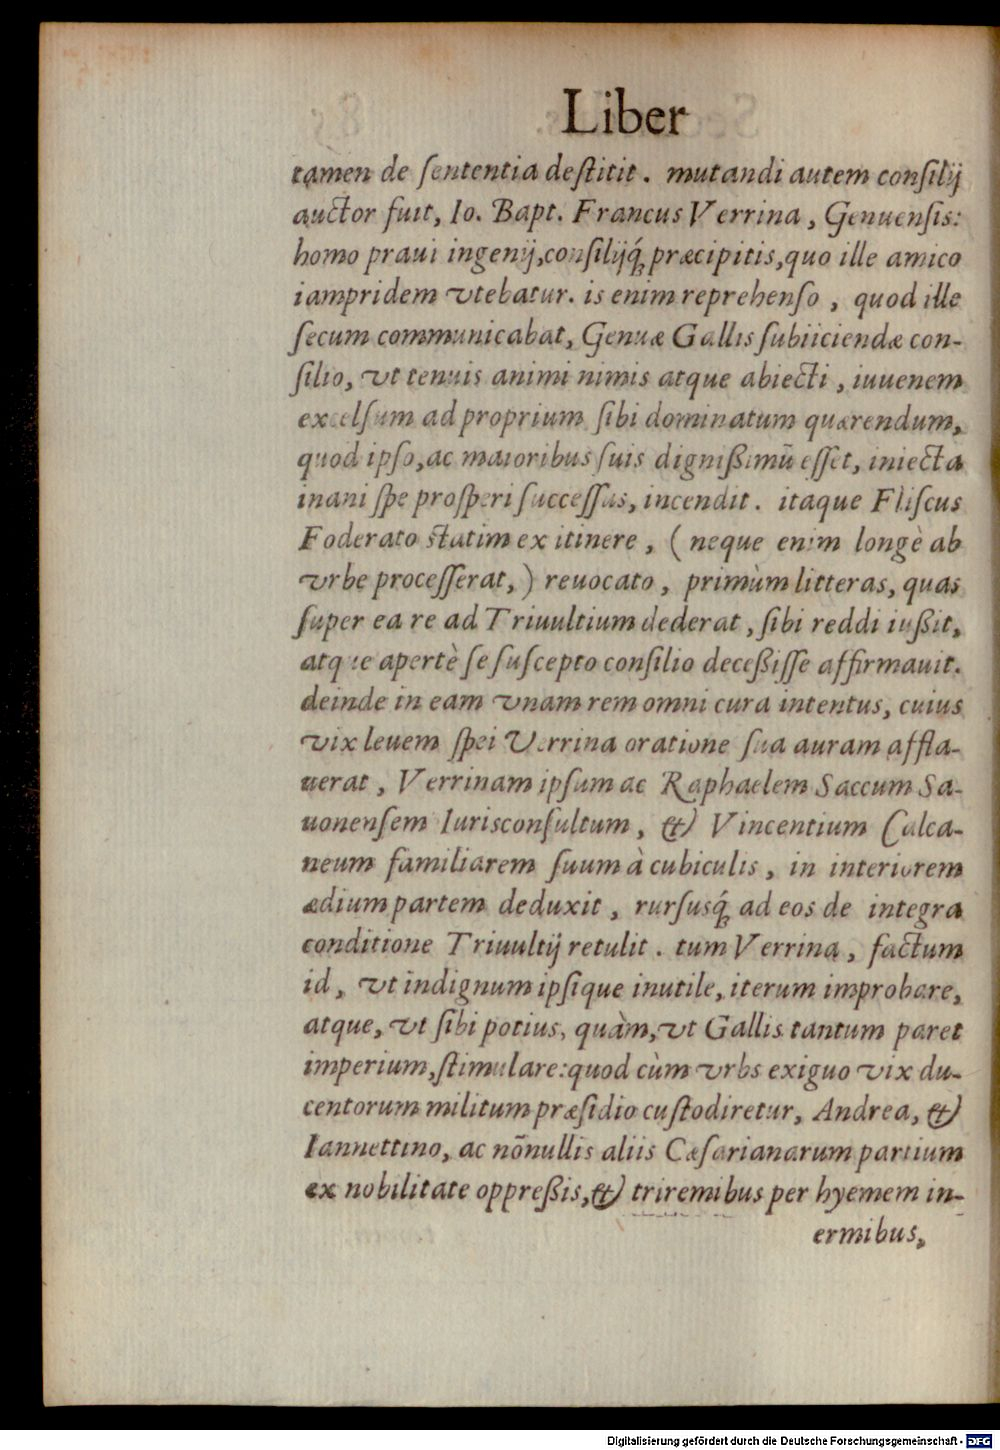 Liber
tamen de ſententia deſtitit. mutandi autem conſilij
auctor fuit, Io. Bapt. Francus Verrina, Genuenſis:
homo praui ingenij, conſilijq́; præcipitis, quo ille amico
iampridem vtebatur. is enim reprehenſo, quod ille
ſecum communicabat, Genuæ Gallis ſubiiciendæ con-
ſilio, vt tenuis animi nimis atque abiecti, iuuenem
excelſum ad proprium ſibi dominatum quærendum,
quod ipſo, ac maioribus ſuis dignißimũ eſſet, iniecta
inani ſpe proſperi ſucceſſus, incendit. itaque Fliſcus
Foderato ſtatim ex itinere, (neque enim longè ab
vrbe proceſſerat,) reuocato, primùm litteras, quas
ſuper ea re ad Triuultium dederat, ſibi reddi iußit,
atque apertè ſe ſuſcepto conſilio deceßiſſe affirmauit.
deinde in eam vnam rem omni cura intentus, cuius
vix leuem ſpei Verrina oratione ſua auram affla-
uerat, Verrinam ipſum ac Raphaelem Saccum Sa-
uonenſem Iurisconſultum, & Vincentium Calca-
neum familiarem ſuum à cubiculis, in interiorem
ædium partem deduxit, rurſusq́; ad eos de integra
conditione Triuultij retulit. tum Verrina, factum
id, vt indignum ipſique inutile, iterum improbare,
atque, vt ſibi potius, quàm, vt Gallis tantum paret
imperium, ſtimulare: quod cùm vrbs exiguo vix du-
centorum militum præſidio cuſtodiretur, Andrea, &
Iannettino, ac nõnullis aliis Cæſarianarum partium
ex nobilitate oppreßis, & triremibus per hyemem in-
ermibus,
Digitalisierung gefördert durch die Deutsche Forschungsgemeinschaft - DFG